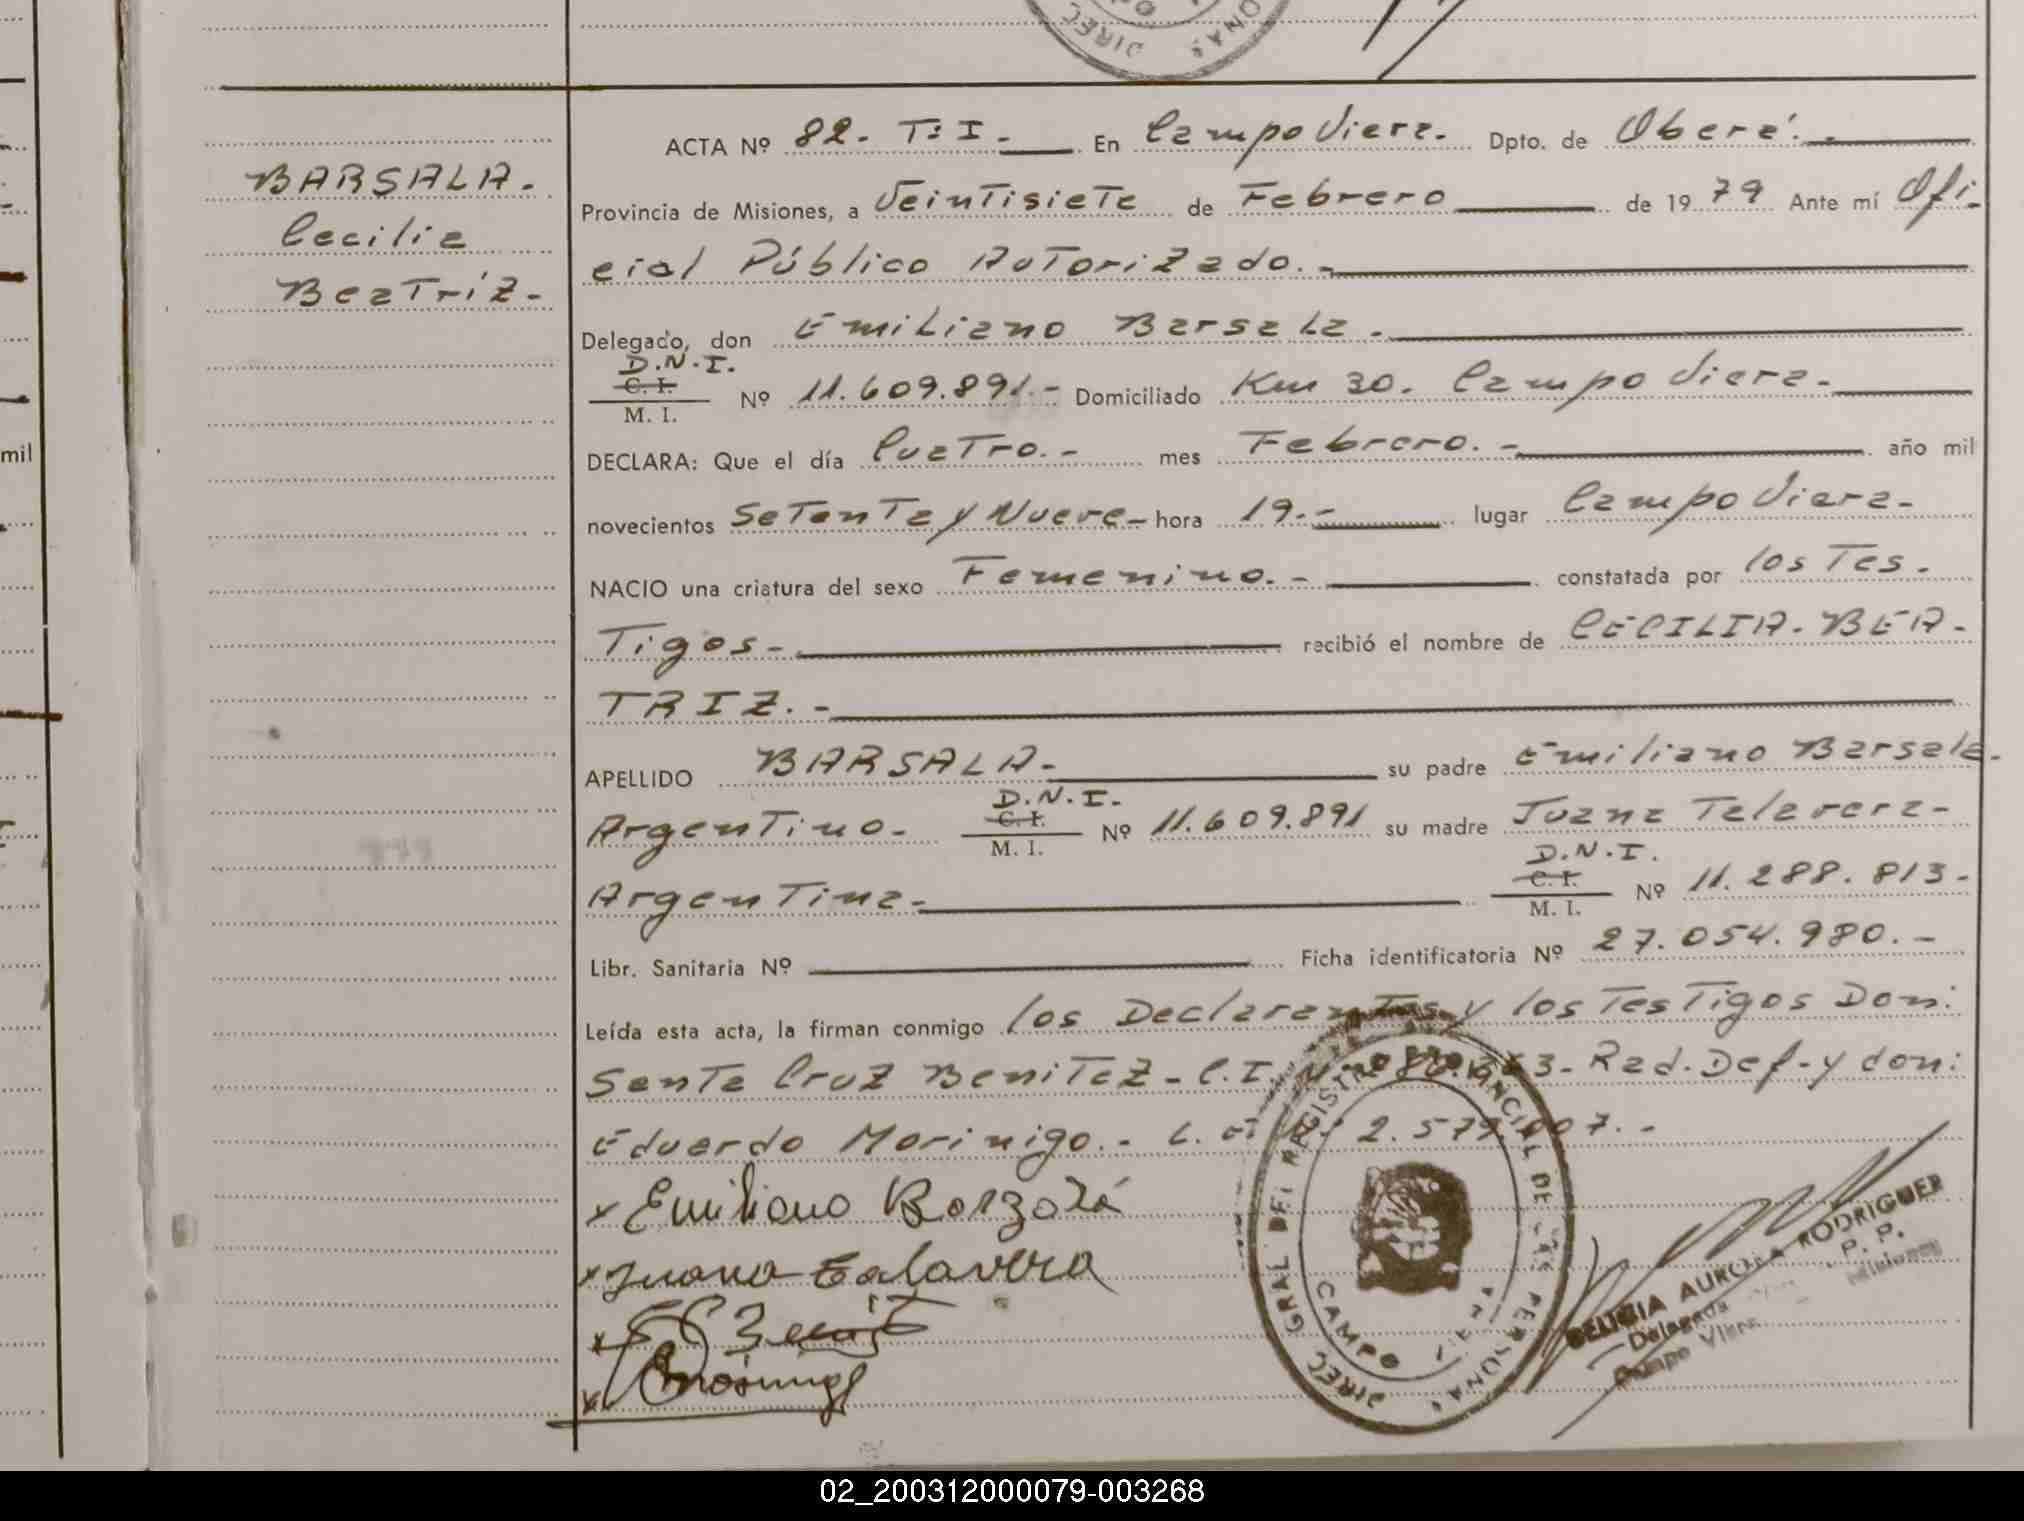 DIREC ONAS
BARSALA.
Cecilia
Beatriz-
mil
ACTA Nº 82. T:I.- En Campo Viera. Dpto. de Oberá.-
Provincia de Misiones, a Veintisiete de Febrero de 1979 Ante mí Ofi-
cial Público Autorizado.-
Delegado, don Emiliano Barsala.-
D.N.I.
C. I.
M. I.
Nº 11.609.891.- Domiciliado Km 30. Campo Viera.-
DECLARA: Que el día Cuatro.- mes Febrero.- año mil
novecientos Setenta y Nueve- hora 19.- lugar Campo Viera-
NACIO una criatura del sexo Femenino.- constatada por los Tes.
Tigos- recibió el nombre de CECILIA. BEA-
TRIZ.-
APELLIDO BARSALA- su padre Emiliano Barsala.
Argentino- D.N.I. C. I. M. I. Nº 11.609.891 su madre Juana Talavera-
Argentina- D.N.I. C. I. M. I. Nº 11.288.813-
Libr. Sanitaria Nº Ficha identificatoria Nº 27.054.980.-
Leída esta acta, la firman conmigo los Declarantes y los Testigos Don:
Santa Cruz Benitez- C.I. Rad. Def-y don:
Eduardo Morinigo.- L. E. 2.579.
x Emiliano Barzalá
x Juana Talavera
x
x
DIREC. GRAL DEL REGISTRO PROVINCIAL DE LAS PERSONAS
CAMPO VIERA
DELICIA AURORA RODRIGUEZ
Delegada
Campo Viera
P. P.
Misiones
02_200312000079-003268